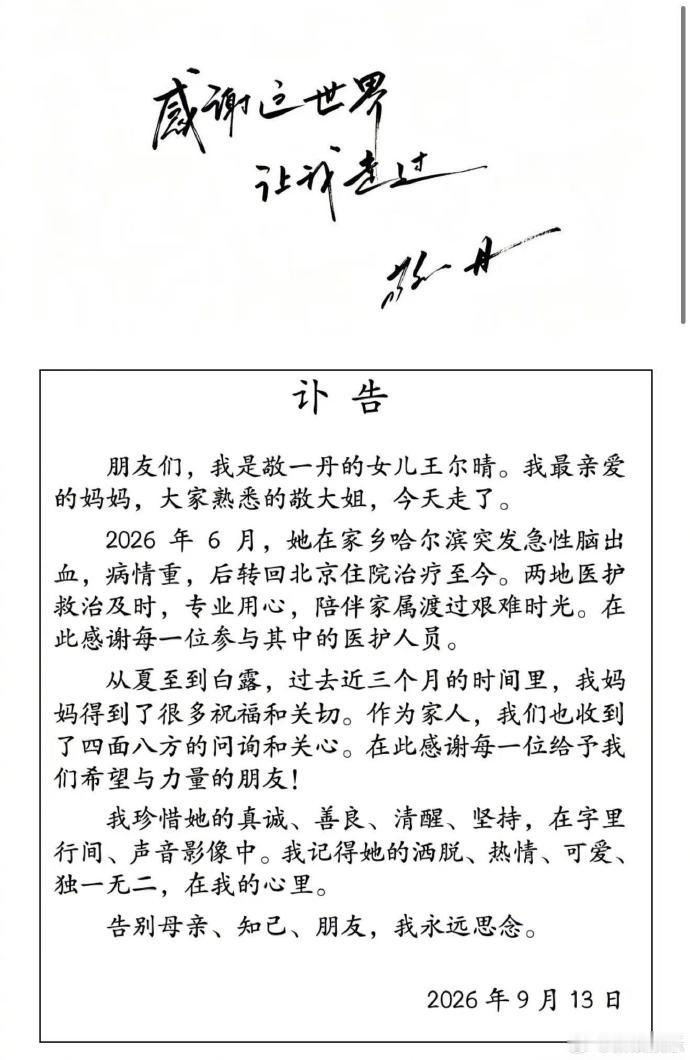 感谢这世界
让我走过
敬一丹
讣 告
朋友们，我是敬一丹的女儿王尔晴。我最亲爱
的妈妈，大家熟悉的敬大姐，今天走了。
2026 年 6 月，她在家乡哈尔滨突发急性脑出
血，病情重，后转回北京住院治疗至今。两地医护
救治及时，专业用心，陪伴家属渡过艰难时光。在
此感谢每一位参与其中的医护人员。
从夏至到白露，过去近三个月的时间里，我妈
妈得到了很多祝福和关切。作为家人，我们也收到
了四面八方的问询和关心。在此感谢每一位给予我
们希望与力量的朋友！
我珍惜她的真诚、善良、清醒、坚持，在字里
行间、声音影像中。我记得她的洒脱、热情、可爱、
独一无二，在我的心里。
告别母亲、知己、朋友，我永远思念。
2026 年 9 月 13 日